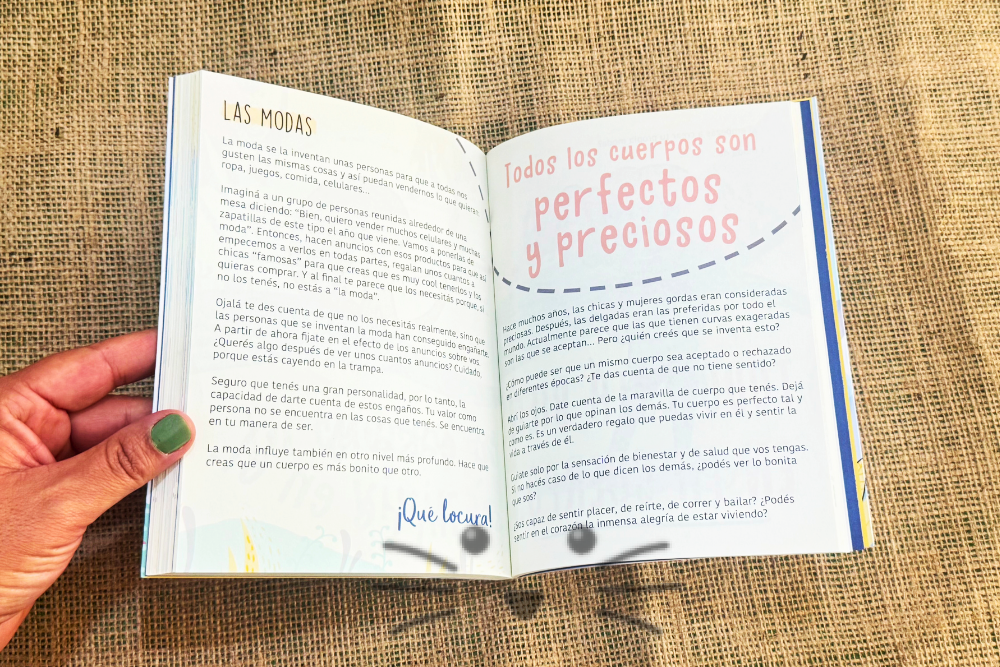 LAS MODAS
La moda se la inventan unas personas para que a todas nos
gusten las mismas cosas y así puedan vendernos lo que quieran:
ropa, juegos, comida, celulares...
Imaginá a un grupo de personas reunidas alrededor de una
mesa diciendo: “Bien, quiero vender muchos celulares y muchas
zapatillas de este tipo el año que viene. Vamos a ponerlas de
moda”. Entonces, hacen anuncios con esos productos para que así
empecemos a verlos en todas partes, regalan unos cuantos a
chicas “famosas” para que creas que es muy cool tenerlos y los
quieras comprar. Y al final te parece que los necesitás porque, si
no los tenés, no estás a “la moda”.
Ojalá te des cuenta de que no los necesitás realmente, sino que
las personas que se inventan la moda han conseguido engañarte.
A partir de ahora fijate en el efecto de los anuncios sobre vos.
¿Querés algo después de ver unos cuantos anuncios? Cuidado,
porque estás cayendo en la trampa.
Seguro que tenés una gran personalidad, por lo tanto, la
capacidad de darte cuenta de estos engaños. Tu valor como
persona no se encuentra en las cosas que tenés. Se encuentra
en tu manera de ser.
La moda influye también en otro nivel más profundo. Hace que
creas que un cuerpo es más bonito que otro.
¡Qué locura!
Todos los cuerpos son
perfectos
y preciosos
Hace muchos años, las chicas y mujeres gordas eran consideradas
preciosas. Después, las delgadas eran las preferidas por todo el
mundo. Actualmente parece que las que tienen curvas exageradas
son las que se aceptan... Pero ¿quién creés que se inventa esto?
¿Cómo puede ser que un mismo cuerpo sea aceptado o rechazado
en diferentes épocas? ¿Te das cuenta de que no tiene sentido?
Abrí los ojos. Date cuenta de la maravilla de cuerpo que tenés. Dejá
de guiarte por lo que opinan los demás. Tu cuerpo es perfecto tal y
como es. Es un verdadero regalo que puedas vivir en él y sentir la
vida a través de él.
Guiate solo por la sensación de bienestar y de salud que vos tengas.
Si no hacés caso de lo que dicen los demás, ¿podés ver lo bonita
que sos?
¿Sos capaz de sentir placer, de reírte, de correr y bailar? ¿Podés
sentir en el corazón la inmensa alegría de estar viviendo?